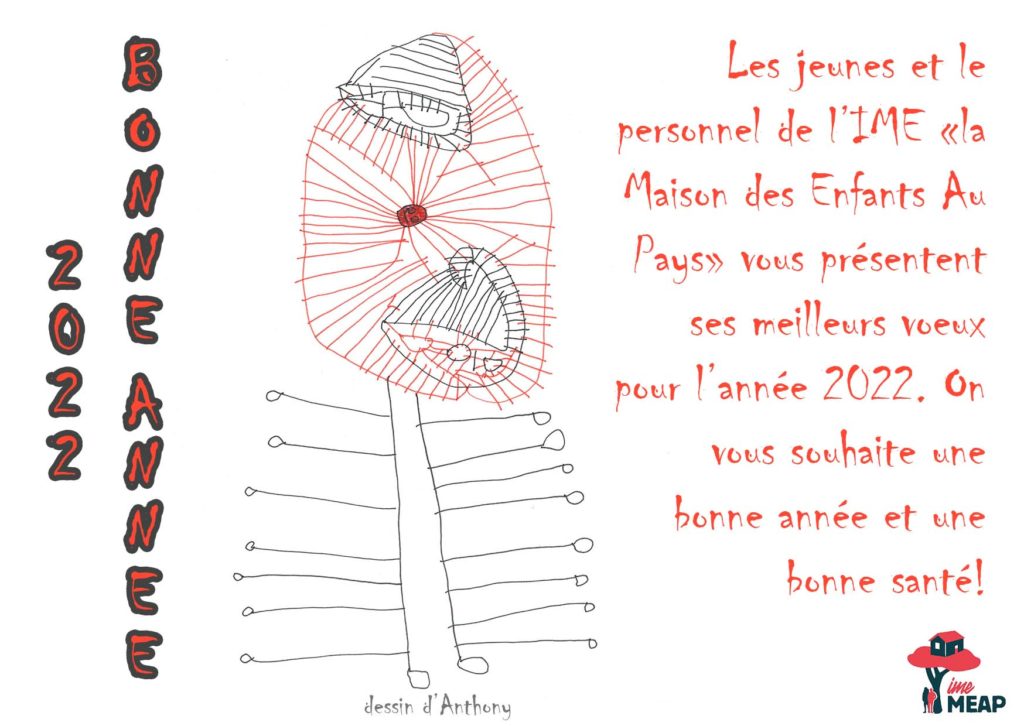 BONNE ANNEE
2022
Les jeunes et le
personnel de l'IME «la
Maison des Enfants Au
Pays» vous présentent
ses meilleurs voeux
pour l'année 2022. On
vous souhaite une
bonne année et une
bonne santé!
dessin d'Anthony
ime
MEAP